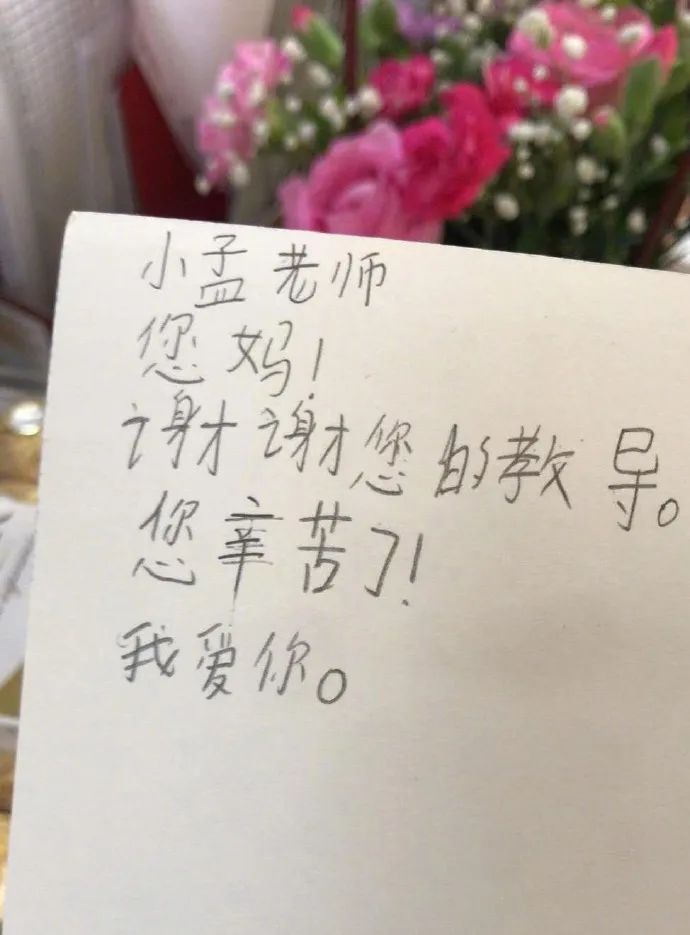 小孟老师
您妈！
谢谢您的教导。
您辛苦了！
我爱你。